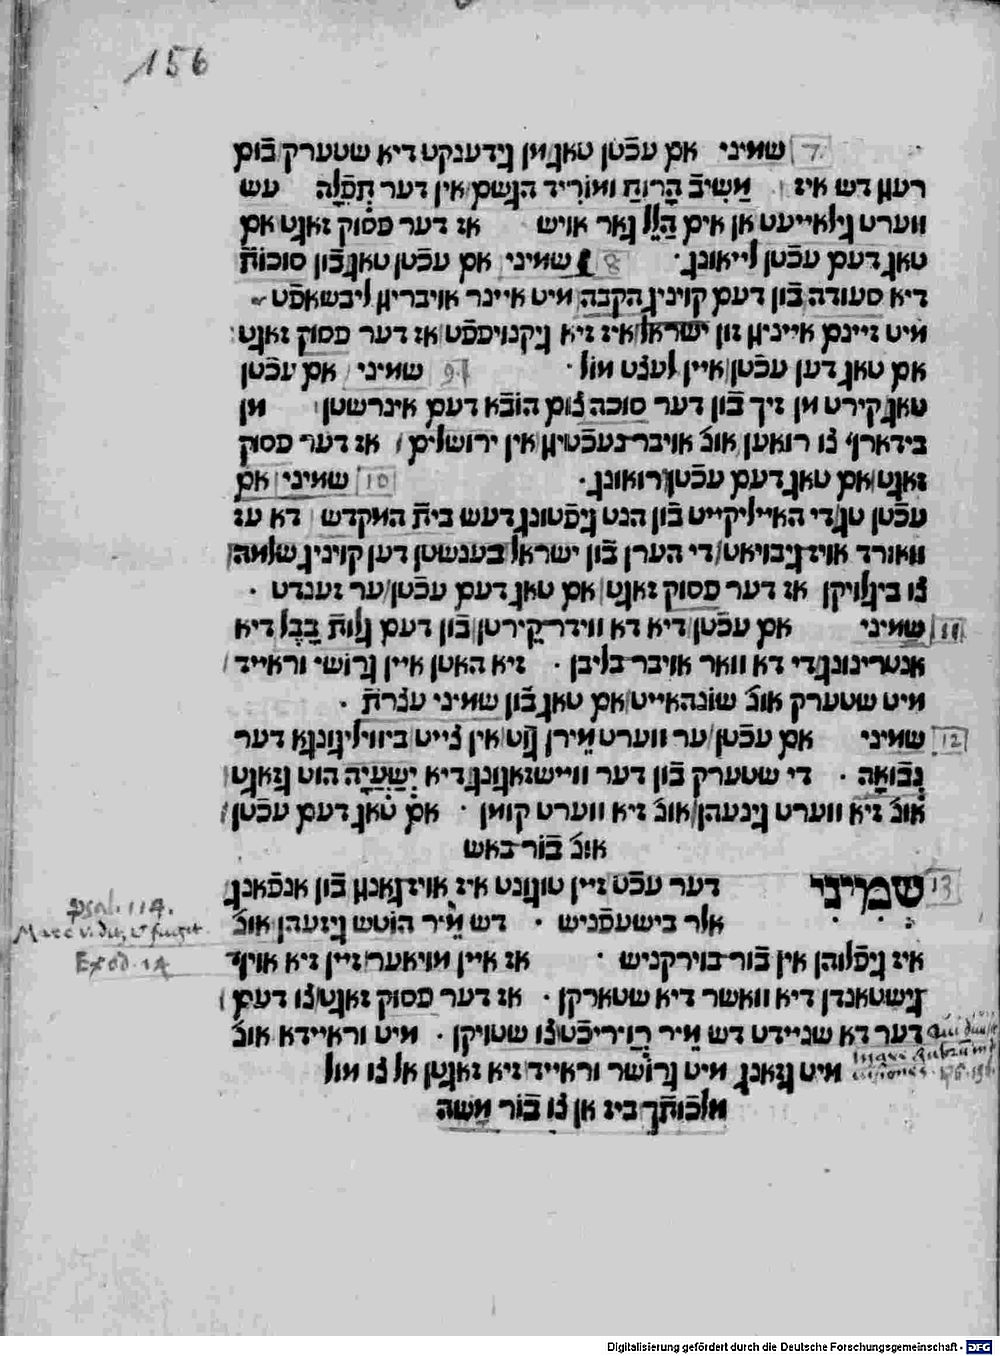 156
7 שמיני אם עכֿטן טאג מן גידענקט דיא שטערק בֿום
רעגן דש איז מַשִׁיבֿ הָרוּחַ ומוֹרִיד הגשם אין דער תְפִלָה עש
ווערט גילאייעט אן אים הַלֵל גאר אויש אז דער פסוק זאגט אם
טאג דעם עכֿטן לייאונג. 8 שמיני אם עכֿטן טאג בֿון סוכות
דיא סעודה בֿון דעם קויניג הקבה מיט איינר אויבריגן ליבשאפֿט
מיט זיינם אייניגן זון ישראל איז זיא גיקנויפפֿט אז דער פסוק זאגט
אם טאג דען עכֿטן איין לעצט מול. 9 שמיני אם עכֿטן
טאג קירט מן זיך בֿון דער סוכה צום הובֿא דעם אינרשטן מן
בידארף צו רואען אונ אויבר נעכֿטיגן אין ירושלים אז דער פסוק
זאגט אם טאג דעם עכֿטן רואונג. 10 שמיני אם
עכֿטן טג די האייליקייט בֿון הנט גיפֿטונג דעש בית המקדש דא עז
ווארד אויז גיבויאט די הערן בֿון ישראל בענשטן דען קויניג שלמה
צו ביגלויקן אז דער פסוק זאגט אם טאג דעם עכֿטן ער זענדט.
11 שמיני אם עכֿטן דיא דא ווידר קֵירטן בֿון דעם גלות בָבֶל דיא
אנטרינונג די דא וואר אויבר בליבן. זיא האטן איין גרושי וראייד
מיט שטערק אונ שונהאייט אם טאג בֿון שמיני עצרת.
12 שמיני אם עכֿטן ער ווערט מֵירן גוט אין צייט ביוויליגונגא דער
נְבֿוּאָה. די שטערק בֿון דער ווייששאגונג דיא יְשַעְיָה הוט גזאגט
אונ זיא ווערט גינעהן אונ זיא ווערט קומן. אם טאג דעם עכֿטן
אונ בֿור באש
13 שמיני דער עכֿט זיין טוגונט איז אויזגאנגן בֿון אנפֿאנג
אלר בישעפֿניש. דש מֵיר הוטש גיזעהן אונ
איז גיפֿלוהן אין בֿור בוירקניש. אז איין מויאער זיין זיא אויף
גישטאנדן דיא וואשר דיא שטארקן. אז דער פסוק זאגט צו דעם
דער דא שניידט דש מֵיר רויריכֿט צו שטויקן. מיט וראיידא אונ
מיט גזאנג מיט גרושר וראייד זיא זאגטן אל צו מול
מלכותך ביז אן צו בֿור מַשה
psal. 114.
Mare vidit et fugit
Exod. 14